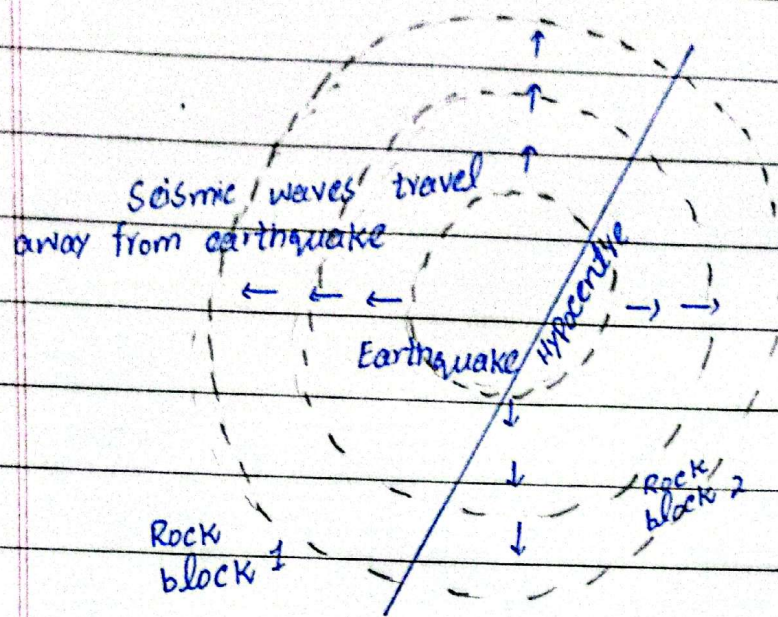 Seismic waves travel
away from earthquake
Earthquake
Hypocentre
Rock
block 2
Rock
block 1